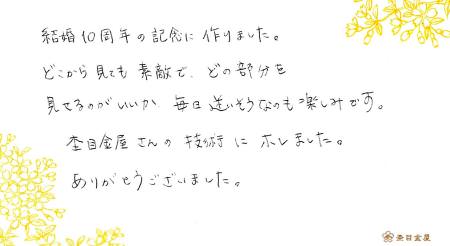 結婚10周年の記念に作りました。
どこから見ても素敵で、どの部分を
見せるのがいいか 毎日迷いそうなのも楽しみです。
杢目金屋さんの技術にホレました。
ありがとうございました。
杢目金屋